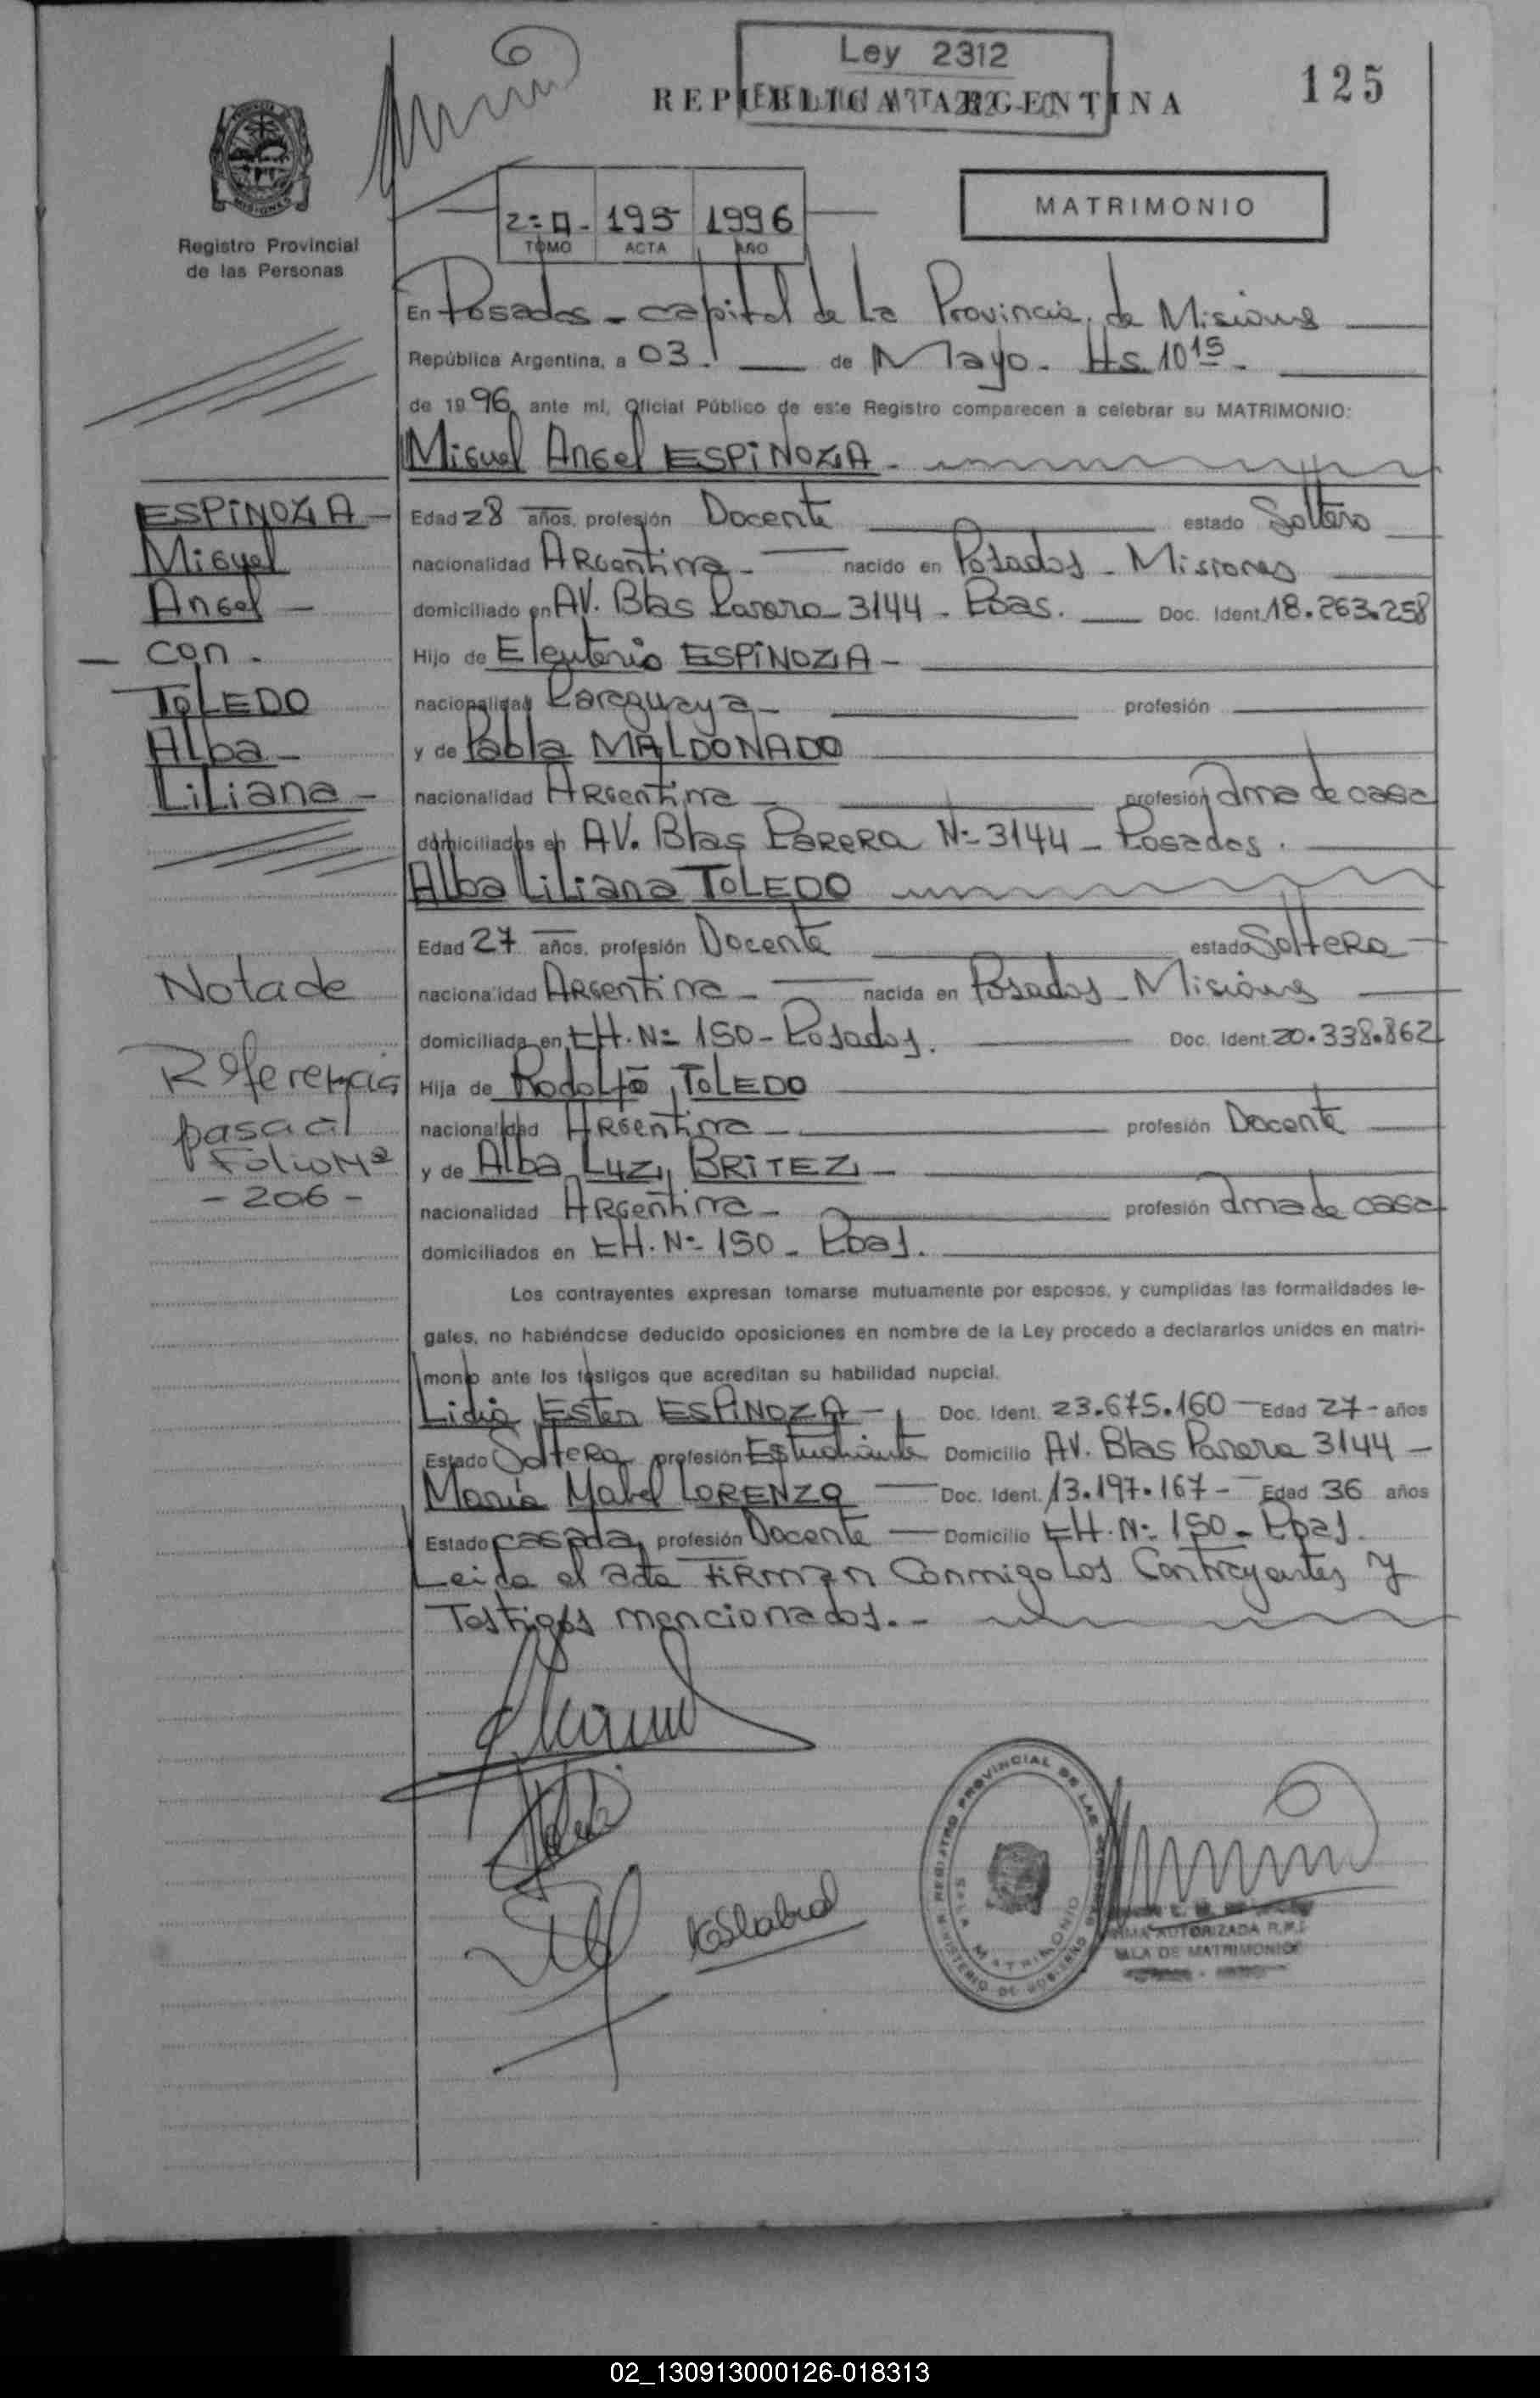 Ley 2312
REPUBLICA ARGENTINA
125
MISIONES
Registro Provincial
de las Personas
2=A- 195 1996
TOMO ACTA AÑO
MATRIMONIO
En Posadas - capital de la Provincia de Misiones
República Argentina, a 03. de Mayo - Hs. 10 15 -
de 1996, ante mí, Oficial Público de este Registro comparecen a celebrar su MATRIMONIO:
Miguel Angel ESPINOZA -
Edad 28 años, profesión Docente estado Soltero
nacionalidad Argentina - nacido en Posadas - Misiones
domiciliado en AV. Blas Parera 3144 - Pdas. Doc. Ident. 18.263.258
Hijo de Eleuterio ESPINOZA -
nacionalidad Paraguaya - profesión
y de Pabla MALDONADO
nacionalidad Argentina - profesión Ama de casa
domiciliados en AV. Blas Parera N= 3144 - Posadas.
Alba Liliana TOLEDO
Edad 27 años, profesión Docente estado Soltera
nacionalidad Argentina - nacida en Posadas - Misiones
domiciliada en CH. N= 150 - Posadas. Doc. Ident. 20.338.862
Hija de Rodolfo TOLEDO
nacionalidad Argentina - profesión Docente
y de Alba Luz BRITEZ -
nacionalidad Argentina - profesión Ama de casa
domiciliados en CH. N= 150 - Pdas.
Los contrayentes expresan tomarse mutuamente por esposos, y cumplidas las formalidades le-
gales, no habiéndose deducido oposiciones en nombre de la Ley procedo a declararlos unidos en matri-
monio ante los testigos que acreditan su habilidad nupcial.
Lidia Ester ESPINOZA - Doc. Ident. 23.675.160 - Edad 27 - años
Estado Soltera profesión Estudiante Domicilio AV. Blas Parera 3144 -
María Mabel LORENZO - Doc. Ident. 13.197.167 - Edad 36 años
Estado casada, profesión Docente - Domicilio CH. N= 150 - Pdas.
Leida el acta FIRMAN Conmigo Los Contrayentes y
Testigos mencionados. -
ESPINOZA -
Miguel
Angel -
- con -
TOLEDO
Alba -
Liliana -
Nota de
Referencia
pasa al
Folio Nº
- 206 -
REGISTRO PROVINCIAL DE LAS PERSONAS
MINISTERIO DE GOBIERNO
SALA MATRIMONIO
FIRMA AUTORIZADA R.P.P.
SALA DE MATRIMONIOS
02_130913000126-018313